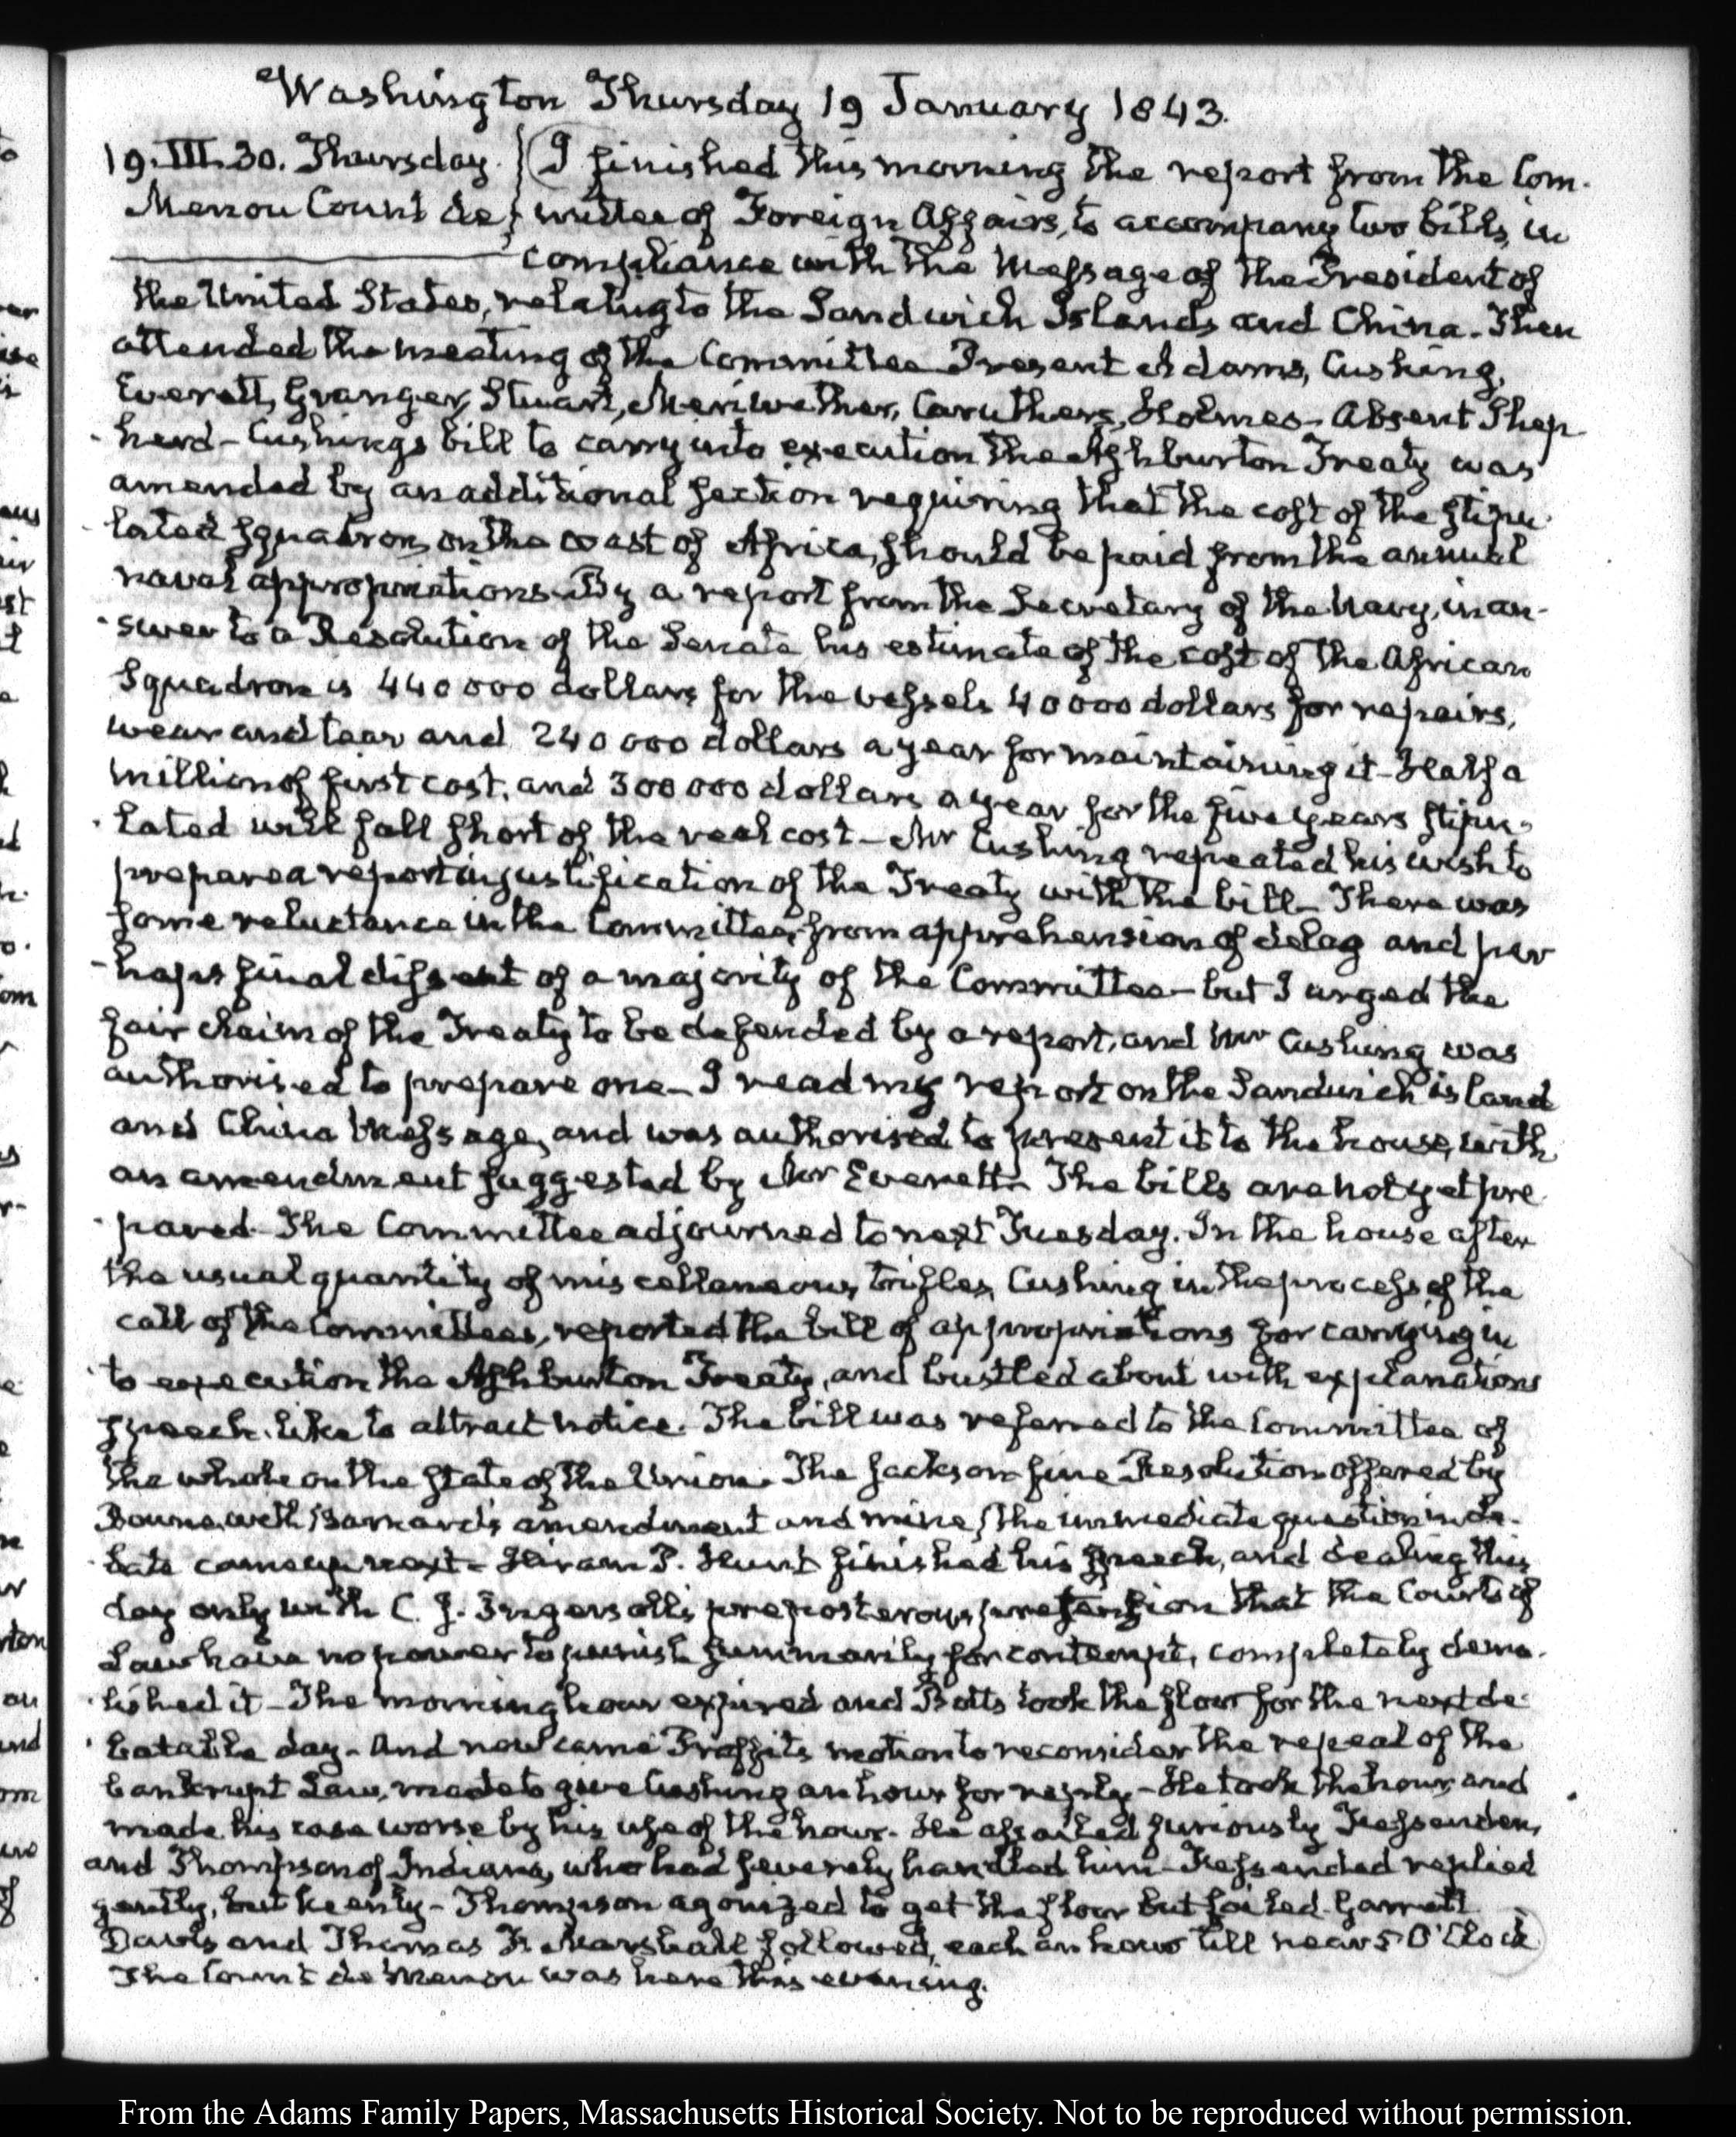 Washington Thursday 19 January 1843.
19. III. 30. Thursday. I finished this morning the report from the Com-
Menou Count de mittee of Foreign Affairs, to accompany two bills, in
compliance with the Message of the President of
the United States, relating to the Sandwich Islands and China. Then
attended the meeting of the Committee Present Adams, Cushing,
Everett, Granger, Stuart, Meriwether, Caruthers, Holmes - Absent Shep-
-herd - Cushings bill to carry into execution the Ashburton Treaty was
amended by an additional section requiring that the cost of the stipu-
-lated squadron on the coast of Africa, should be paid from the annual
naval appropriations. By a report from the Secretary of the Navy, in an-
-swer to a Resolution of the Senate his estimate of the cost of the African
Squadron is 440000 dollars for the vessels 40000 dollars for repairs,
wear and tear and 240000 dollars a year for maintaining it - Half a
million of first cost, and 300000 dollars a year for the five years stipu-
-lated will fall short of the real cost - Mr Cushing repeated his wish to
prepare a report in justification of the Treaty with the bill - There was
some reluctance in the Committee, from apprehension of delay and per
-haps final dissent of a majority of the Committee - but I urged the
fair claim of the Treaty to be defended by a report, and Mr Cushing was
authorised to prepare one - I read my report on the Sandwich island
and China Message, and was authorised to present it to the house, with
an amendment suggested by Mr Everett. The bills are not yet pre
-pared. The Committee adjourned to next Tuesday. In the house after
the usual quantity of miscellaneous trifles, Cushing in the process of the
call of the Committees, reported the bill of appropriations for carrying in
-to execution the Ashburton Treaty, and bustled about with explanations
speech-like to attract notice. The bill was referred to the Committee of
the whole on the state of the Union. The Jackson fine Resolution offered by
Bowne, with Barnard's amendment and mine, the immediate question in de-
-bate came up next - Hiram P. Hunt finished his speech, and dealing this
day only with C. J. Ingersoll's preposterous pretension that the Courts of
Law have no power to punish summarily for contempt, completely demo-
-lished it - The morning hour expired and Botts took the floor for the next de-
-batable day - And now came Proffit's motion to reconsider the repeal of the
bankrupt Law, made to give Cushing an hour for reply - He took the hour, and
made his case worse by his use of the hour. He assailed furiously Fessenden,
and Thompson of Indiana, who had severely handled him - Fessended replied
gently, but keenly - Thompson agonized to get the floor but failed. Garrett
Davis and Thomas F. Marshall followed, each an hour till near 5 O'Clock
The Count de Menou was here this evening.
From the Adams Family Papers, Massachusetts Historical Society. Not to be reproduced without permission.